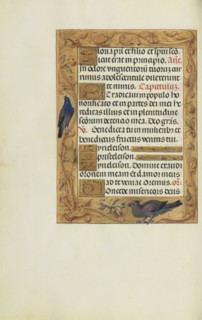 loria p̄ri et filio et sp̄ui scō
icut erat in principio. Añ.
In odore unguentorum tuorum cur
rimus adolescentule dilexerunt
te nimis. Capitulum.
Et radicaui in populo ho
norificato et in partes dei mei he
reditas illius et in plenitudine
sc̄torum detentio mea. Deo grãs.
℣. Benedicta tu in mulieribus et
benedictus fructus ventris tui.
Kyrieleison.
Christeleison.
Kyrieleison. Domine exaudi
orōnem meam et clamor meus
ad te veniat. Oremus. or.
Concede misericors deus